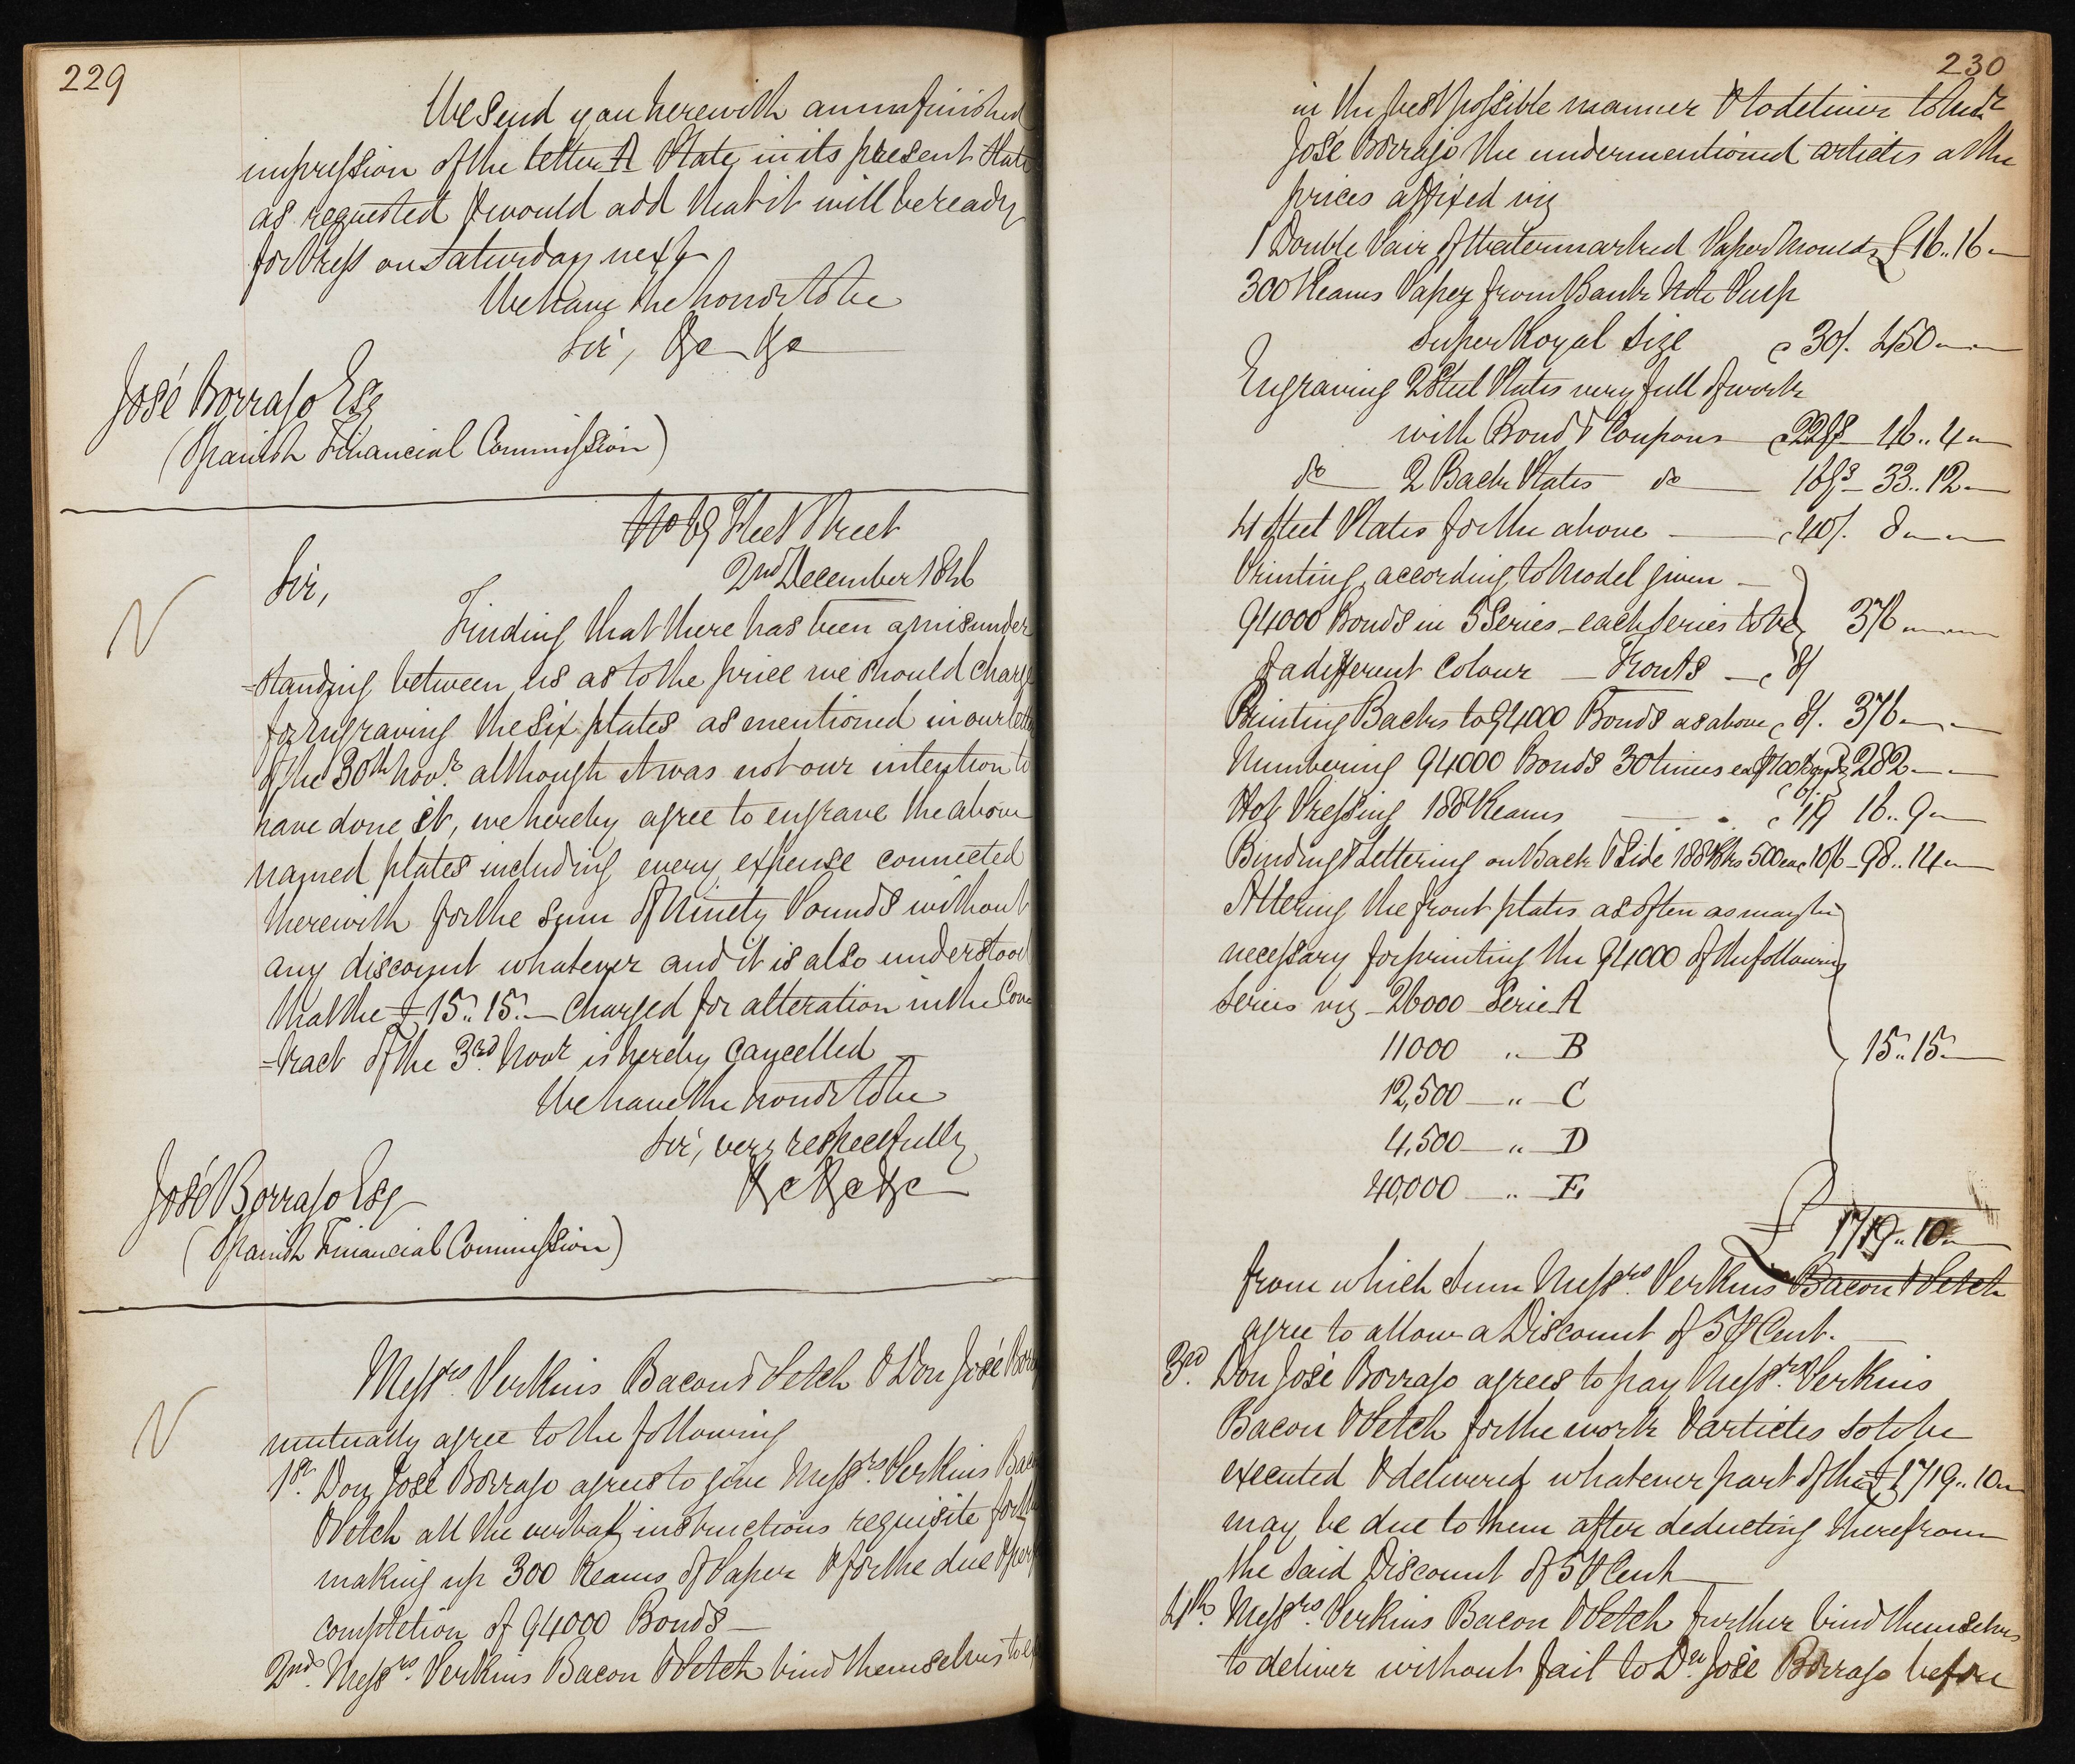 229
We send you herewith an unfinished
impression of the letter A Plate in its present state
as requested & would add that it will be ready
for Press on Saturday next
We have the honor to be
Sir, &c &c
José Borrajo Esq
(Spanish Financial Commission)
No 69 Fleet Street
2nd December 1846
Sir,
Finding that there has been a misunder
=standing between us as to the price we should charge
for Engraving the six plates as mentioned in our letter
of the 30th Novr. although it was not our intention to
have done it, we hereby agree to engrave the above
named plates including every expense connected
therewith for the sum of Ninety Pounds without
any discount whatever and it is also understood
that the £15..15.- charged for alteration in the Con
=tract of the 3rd Novr is hereby cancelled
We have the honor to be
Sir, very respectfully
&c &c &c
José Borrajo Esq
(Spanish Financial Commission)
Messrs. Perkins Bacon & Petch & Don José
mutually agree to the following
1st. Don José Borrajo agrees to give Messrs. Perkins Bacon
& Petch all the verbal instructions requisite for the
making up 300 Reams of Paper & for the due
completion of 94000 Bonds
2nd. Messrs. Perkins Bacon & Petch bind themselves to
230
in the best possible manner & to deliver to
José Borrajo the undermentioned articles at the
prices affixed viz
1 Double Pair of Watermarked Paper Moulds £16..16-
300 Reams Paper from Bank Note Pulp
Super Royal Size @ 30/. 450--
Engraving 2 Steel Plates very full of work
with Bond & Coupons @ 22gs 46..4-
do 2 Back Plates do 16gs 33..12-
4 Steel Plates for the above @ 40/. 8--
Printing according to Model given
94000 Bonds in 5 Series - each Series to be 376--
of a different Colour - Fronts - @ 8/
Printing Backs to 94000 Bonds as above @ 8/. 376--
Numbering 94000 Bonds 30 times ea 282--
Hot Pressing 188 Reams @ 1/9 16..9-
Binding & Lettering on Back & Side 188 Bks 500 ea @ 10/6 98..14-
Altering the front plates as often as may be
necessary for printing the 94000 of the following
Series viz 26000 Serie A
11000 " B
12,500 " C
4,500 " D
40,000 " E
15..15-
£1719..10-
from which Sum Messrs. Perkins Bacon & Petch
agree to allow a Discount of 5 P Cent.
3rd. Don José Borrajo agrees to pay Messrs. Perkins
Bacon & Petch for the work & articles so to be
executed & delivered whatever part of the £1719..10-
may be due to them after deducting therefrom
the said Discount of 5 P Cent
4th. Messrs. Perkins Bacon & Petch further bind themselves
to deliver without fail to Dn José Borrajo before